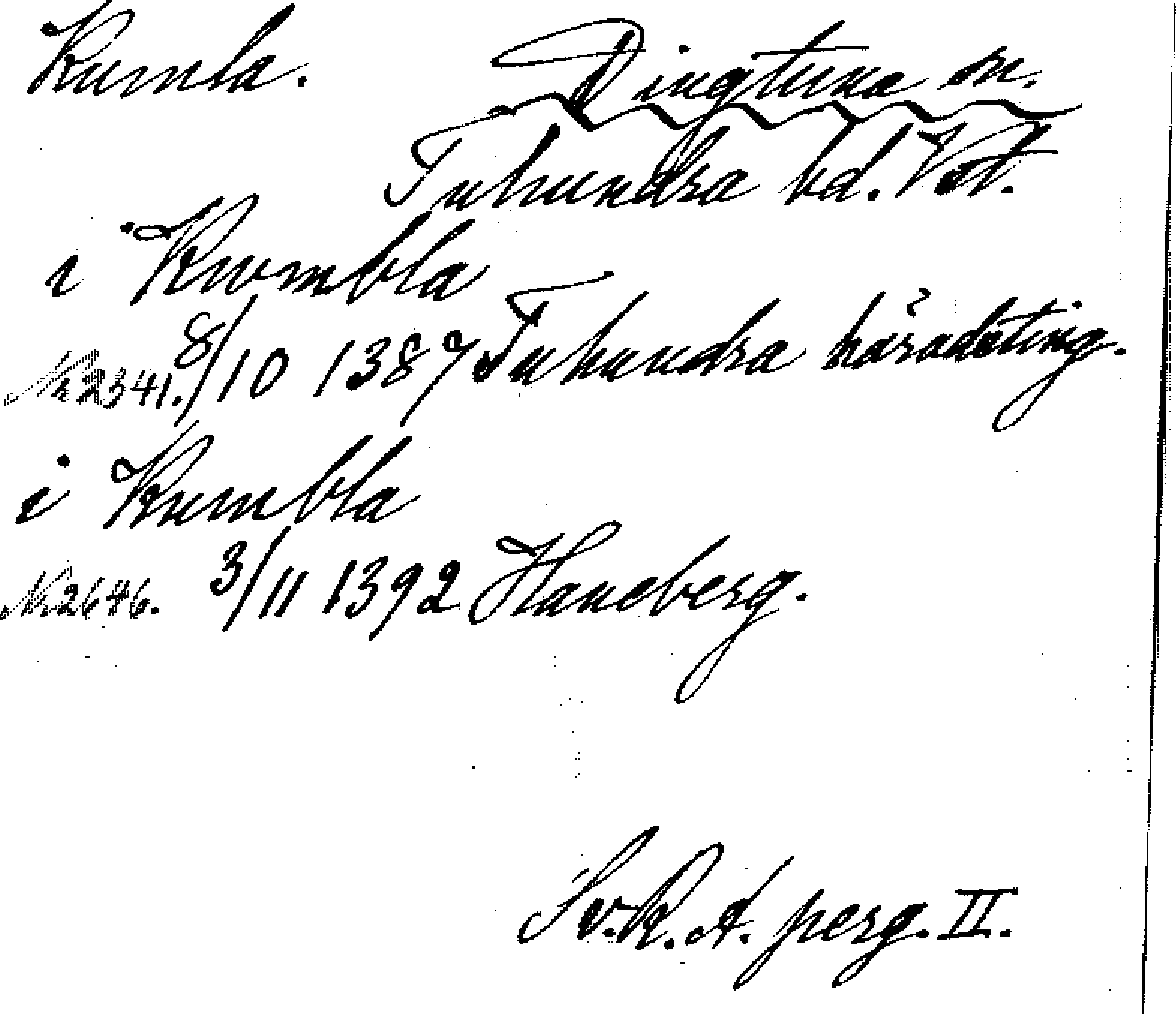 Kumla. Dingtuna sn.
Tuhundra hd. Vstl.
i Kumbla
Nr 2341. 8/10 1387 Tuhundra häradsting.
i Kumbla
Nr 2646. 3/11 1392 Haneberg.
Sv. R. A. perg. II.